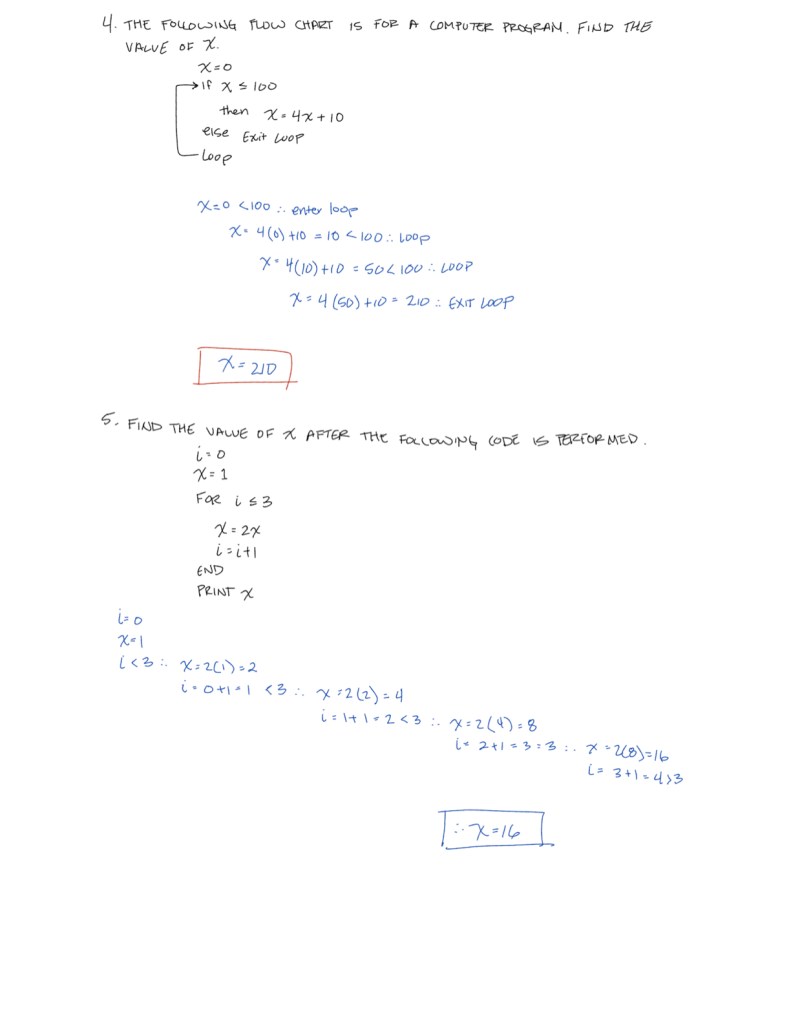 4. THE FOLLOWING FLOW CHART IS FOR A COMPUTER PROGRAM. FIND THE
VALUE OF X.
x=0
if x ≤ 100
then x = 4x + 10
else Exit Loop
Loop
x=0 <100 ∴ enter loop
x= 4(0)+10 = 10 < 100 ∴ LOOP
x= 4(10)+10 = 50 < 100 ∴ LOOP
x = 4(50)+10 = 210 ∴ EXIT LOOP
x = 210
5. FIND THE VALUE OF x AFTER THE FOLLOWING CODE IS PERFORMED.
i=0
x=1
FOR i ≤ 3
x = 2x
i = i+1
END
PRINT x
i=0
x=1
i<3 ∴ x=2(1)=2
i=0+1=1 <3 ∴ x=2(2)=4
i=1+1=2<3 ∴ x=2(4)=8
i= 2+1=3=3 ∴ x=2(8)=16
i= 3+1=4>3
∴ x=16